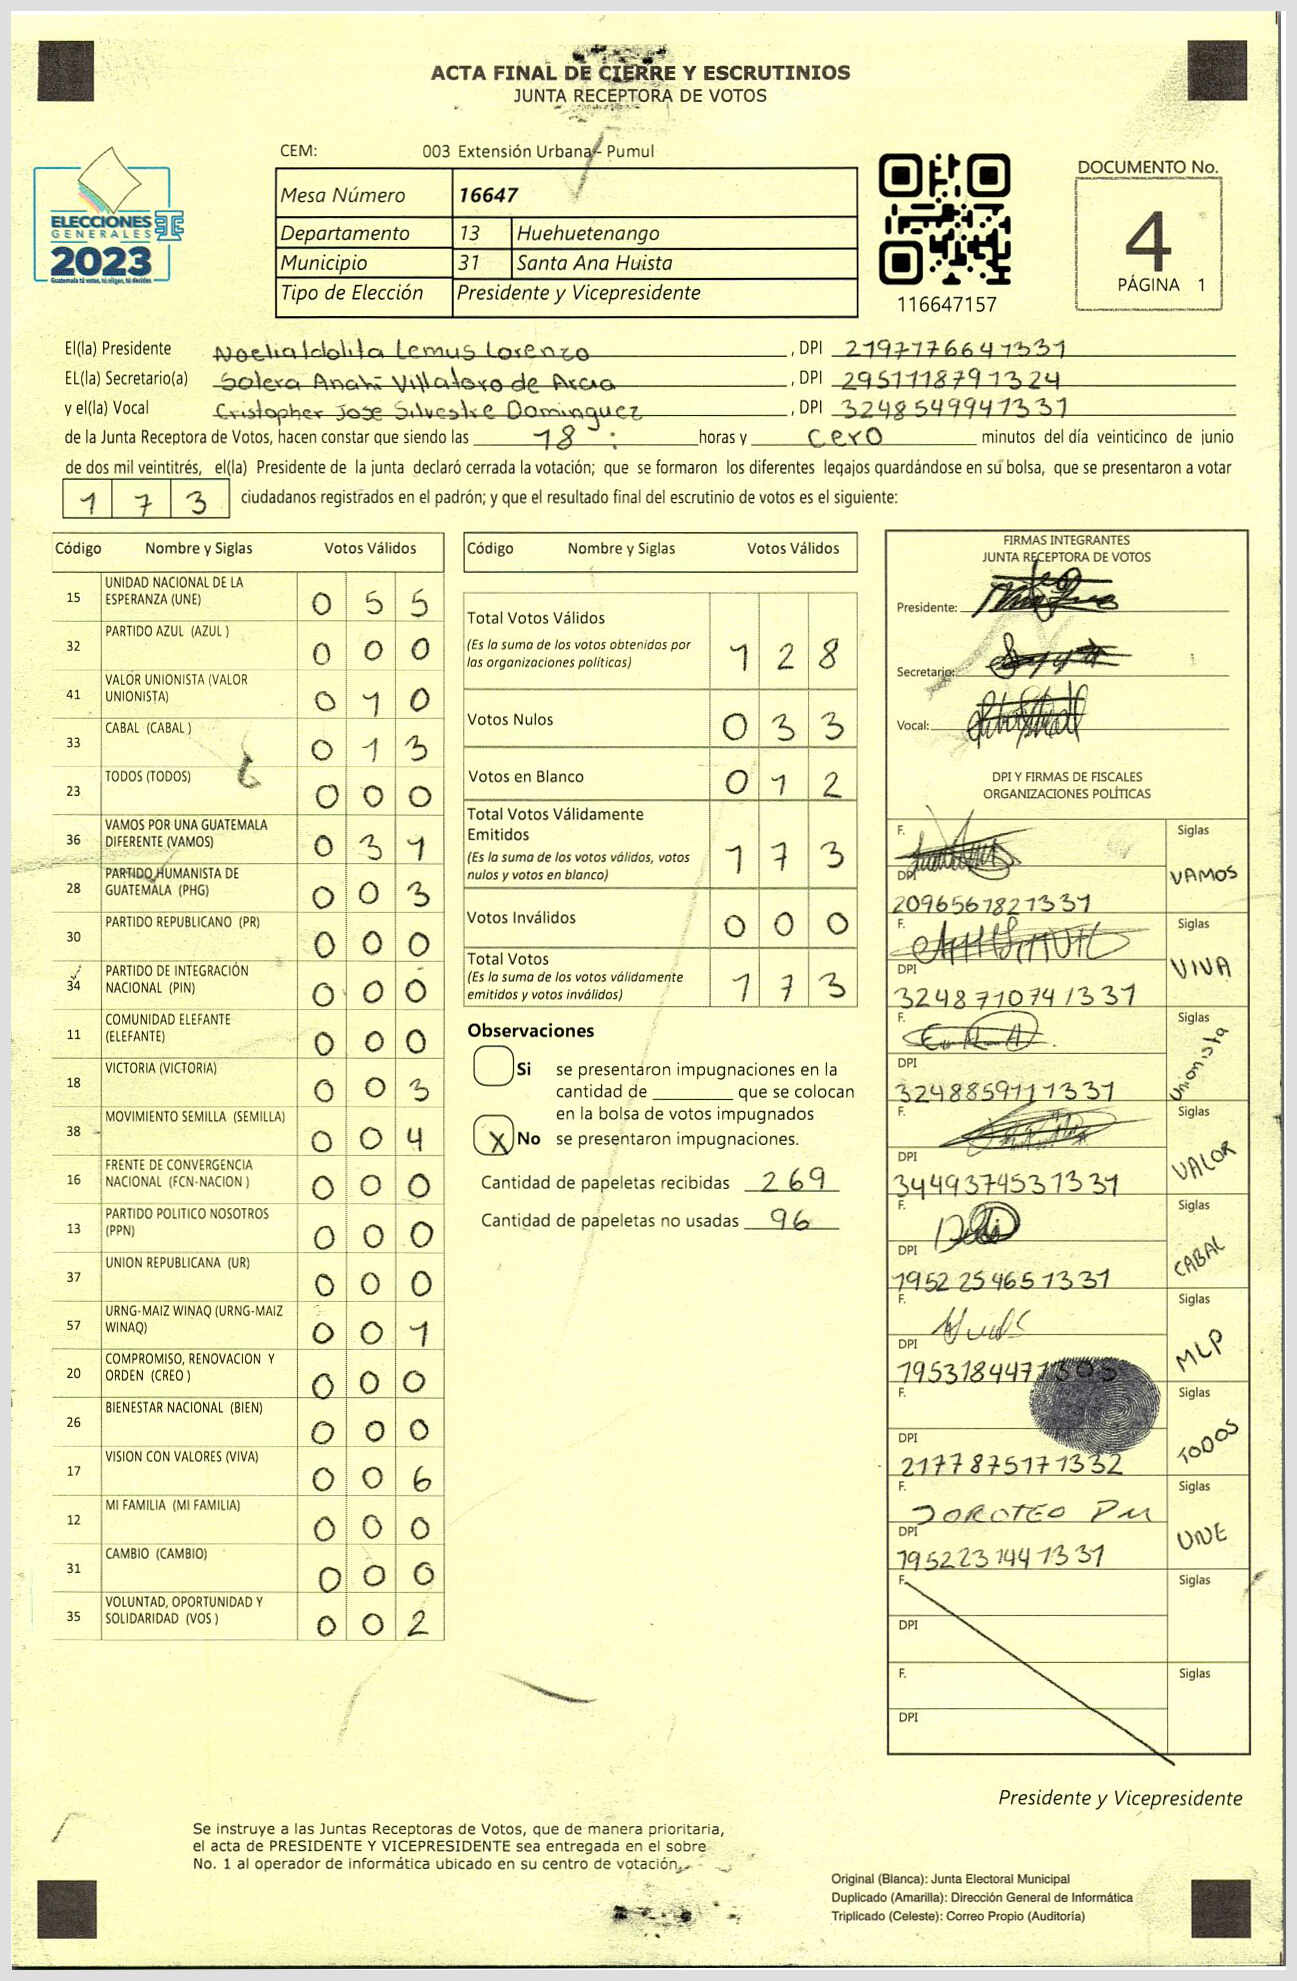 ACTA FINAL DE CIERRE Y ESCRUTINIOS
JUNTA RECEPTORA DE VOTOS
CEM: 003 Extensión Urbana - Pumul
ELECCIONES
GENERALES
2023
Guatemala tú votas, tú eliges, tú decides
Mesa Número 16647
Departamento 13 Huehuetenango
Municipio 31 Santa Ana Huista
Tipo de Elección Presidente y Vicepresidente
116647157
DOCUMENTO No.
4
PÁGINA 1
El(la) Presidente Noelia Idolita Lemus Lorenzo , DPI 2197176641331
EL(la) Secretario(a) Solera Anahí Villatoro de Arcia , DPI 2951118791324
y el(la) Vocal Cristopher Jose Silvestre Dominguez , DPI 3248549941331
de la Junta Receptora de Votos, hacen constar que siendo las 18 : horas y cero minutos del día veinticinco de junio
de dos mil veintitrés, el(la) Presidente de la junta declaró cerrada la votación; que se formaron los diferentes legajos quardándose en su bolsa, que se presentaron a votar
1 7 3 ciudadanos registrados en el padrón; y que el resultado final del escrutinio de votos es el siguiente:
Código Nombre y Siglas Votos Válidos
15 UNIDAD NACIONAL DE LA ESPERANZA (UNE) 0 5 5
32 PARTIDO AZUL (AZUL ) 0 0 0
41 VALOR UNIONISTA (VALOR UNIONISTA) 0 1 0
33 CABAL (CABAL ) 0 1 3
23 TODOS (TODOS) 0 0 0
36 VAMOS POR UNA GUATEMALA DIFERENTE (VAMOS) 0 3 1
28 PARTIDO HUMANISTA DE GUATEMALA (PHG) 0 0 3
30 PARTIDO REPUBLICANO (PR) 0 0 0
34 PARTIDO DE INTEGRACIÓN NACIONAL (PIN) 0 0 0
11 COMUNIDAD ELEFANTE (ELEFANTE) 0 0 0
18 VICTORIA (VICTORIA) 0 0 3
38 MOVIMIENTO SEMILLA (SEMILLA) 0 0 4
16 FRENTE DE CONVERGENCIA NACIONAL (FCN-NACION ) 0 0 0
13 PARTIDO POLITICO NOSOTROS (PPN) 0 0 0
37 UNION REPUBLICANA (UR) 0 0 0
57 URNG-MAIZ WINAQ (URNG-MAIZ WINAQ) 0 0 1
20 COMPROMISO, RENOVACION Y ORDEN (CREO ) 0 0 0
26 BIENESTAR NACIONAL (BIEN) 0 0 0
17 VISION CON VALORES (VIVA) 0 0 6
12 MI FAMILIA (MI FAMILIA) 0 0 0
31 CAMBIO (CAMBIO) 0 0 0
35 VOLUNTAD, OPORTUNIDAD Y SOLIDARIDAD (VOS ) 0 0 2
Código Nombre y Siglas Votos Válidos
Total Votos Válidos 1 2 8
(Es la suma de los votos obtenidos por
las organizaciones políticas)
Votos Nulos 0 3 3
Votos en Blanco 0 1 2
Total Votos Válidamente
Emitidos 1 7 3
(Es la suma de los votos válidos, votos
nulos y votos en blanco)
Votos Inválidos 0 0 0
Total Votos 1 7 3
(Es la suma de los votos válidamente
emitidos y votos inválidos)
Observaciones
Si se presentaron impugnaciones en la
cantidad de ________ que se colocan
en la bolsa de votos impugnados
X No se presentaron impugnaciones.
Cantidad de papeletas recibidas 269
Cantidad de papeletas no usadas 96
FIRMAS INTEGRANTES
JUNTA RECEPTORA DE VOTOS
Presidente:
Secretario:
Vocal:
DPI Y FIRMAS DE FISCALES
ORGANIZACIONES POLÍTICAS
F. Siglas
DPI VAMOS
2096561821331
F. Siglas
DPI VIVA
3248710741331
F. Siglas
DPI Unionista
3248859111331
F. Siglas
DPI VALOR
3449374531331
F. Siglas
DPI CABAL
1952254651331
F. Siglas
DPI MLP
1953184471305
F. Siglas
DPI TODOS
2177875171332
F. DOROTEO Siglas
DPI UNE
1952231441331
F. Siglas
DPI
F. Siglas
DPI
Presidente y Vicepresidente
Se instruye a las Juntas Receptoras de Votos, que de manera prioritaria,
el acta de PRESIDENTE Y VICEPRESIDENTE sea entregada en el sobre
No. 1 al operador de informática ubicado en su centro de votación.
Original (Blanca): Junta Electoral Municipal
Duplicado (Amarilla): Dirección General de Informática
Triplicado (Celeste): Correo Propio (Auditoría)